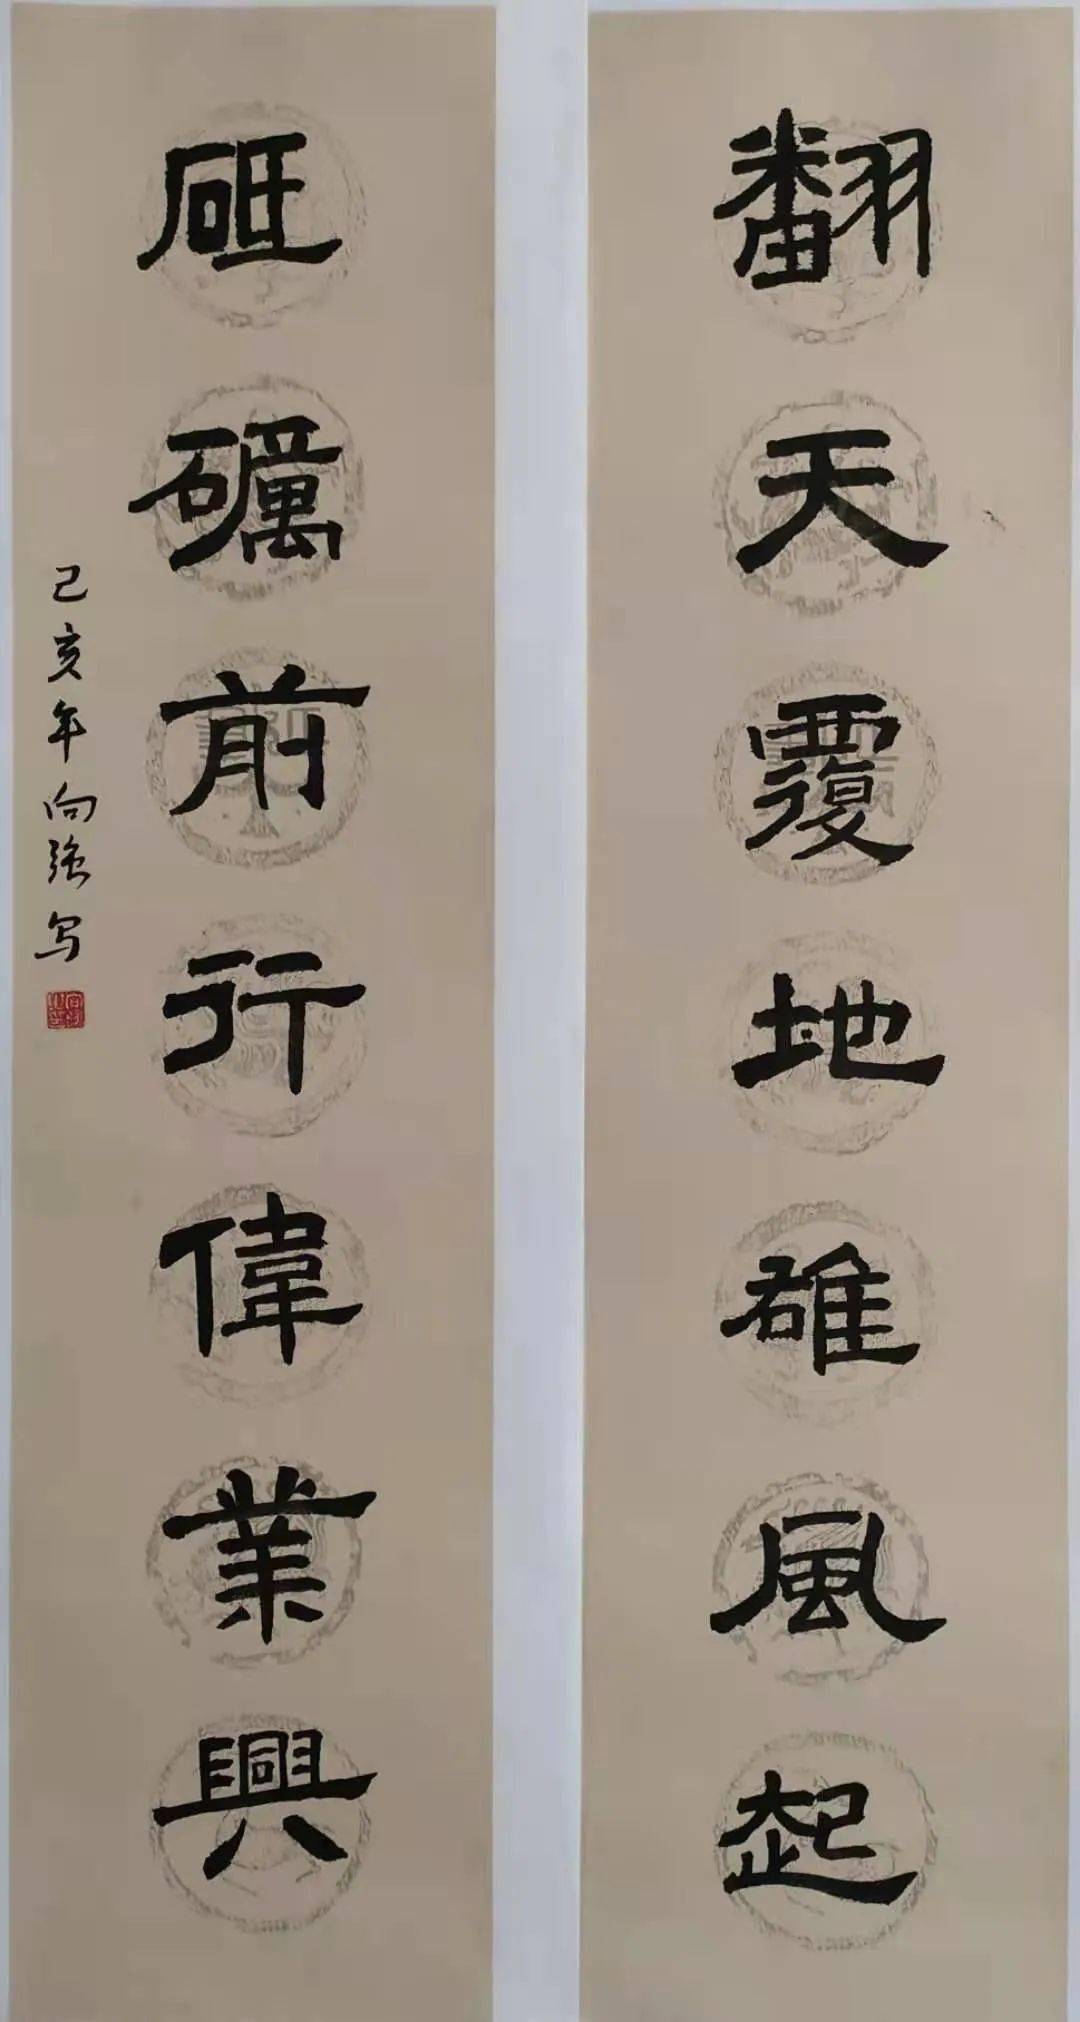 翻天覆地雄風起
砥礪前行偉業興
己亥年向强写